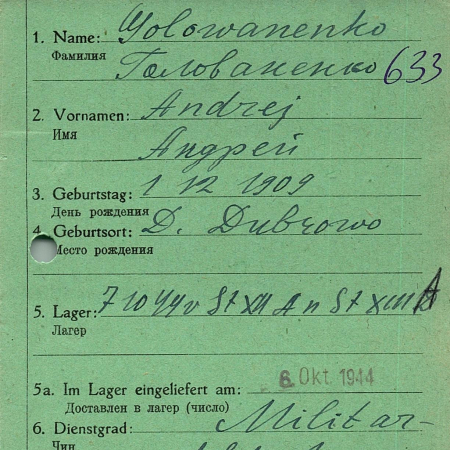 1. Name: Golowanenko
ФамилияГолованенко 633
2. Vornamen: Andrej
Имя
Андрей
3. Geburtstag: 1 12 1909
День рождения
4. Geburtsort: D. Dubrowo
Место рождения
5. Lager: 7 10 44 v St XII A n St XIII A
Лагер
5a. Im Lager eingeliefert am: 6. Okt. 1944
Доставлен в лагер (число)
6. Dienstgrad: Militar-
Чин